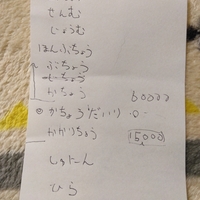 せんむ
じょうむ
ほんぶちょう
ぶちょう
じちょう
かちょう 60000
◎かちょうだいり
かかりちょう 15000
しゅにん
ひら